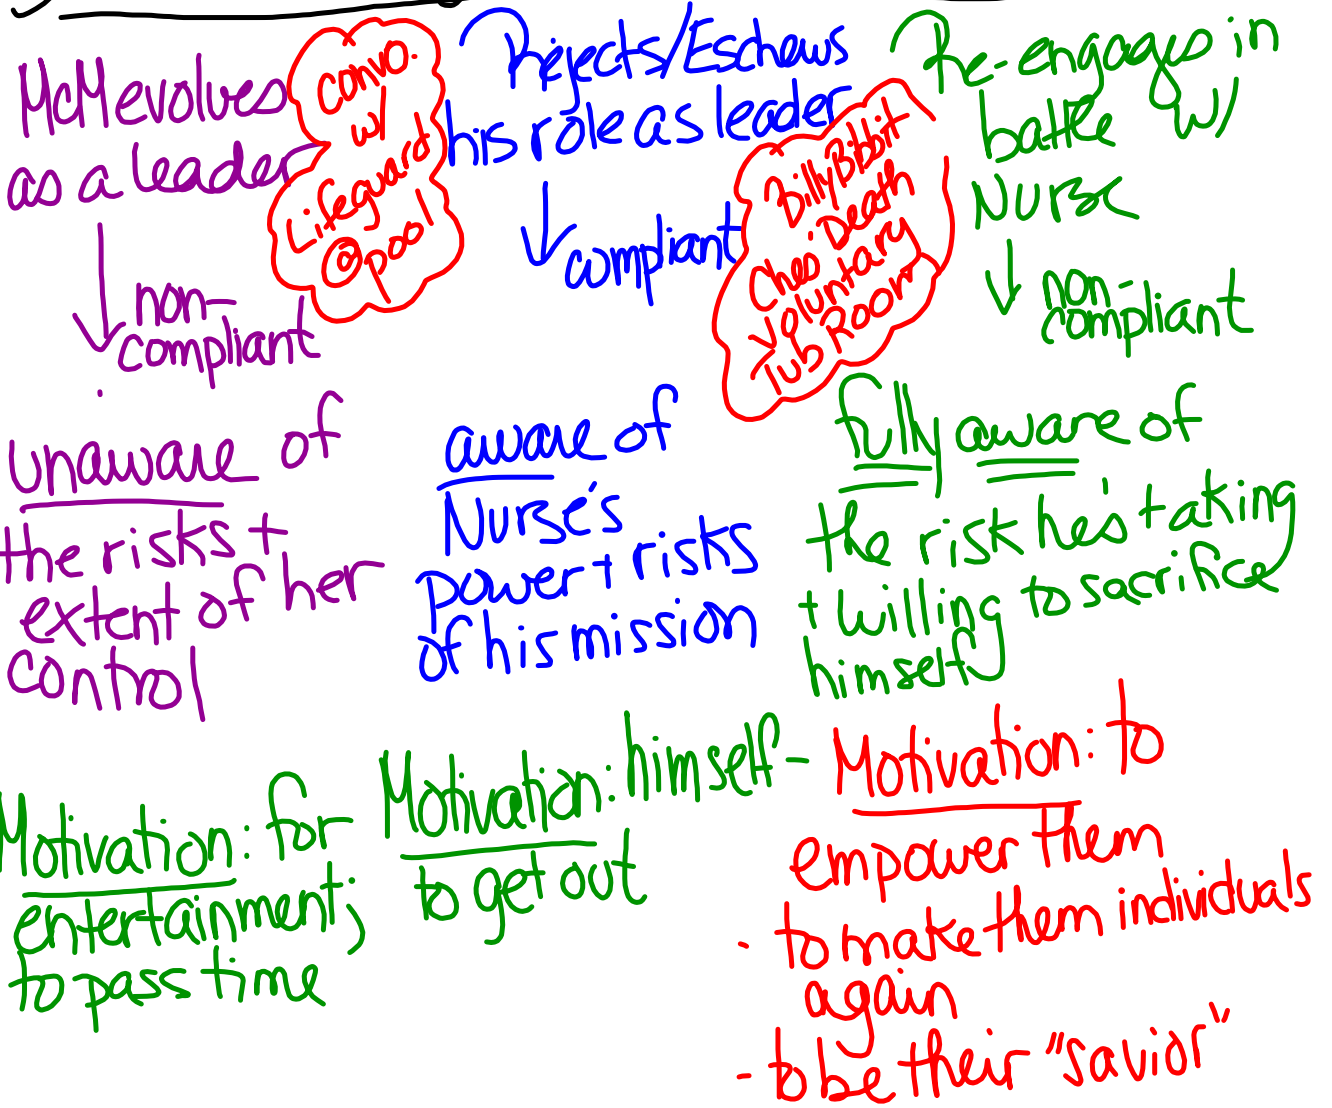 McM evolves
as a leader
non-
compliant
unaware of
the risks +
extent of her
control
Motivation: for
entertainment;
to pass time
convo.
w/
Lifeguard
@pool
Rejects/Eschews
his role as leader
compliant
aware of
Nurse's
power + risks
of his mission
Motivation: himself-
to get out
Billy Bibbit
Ches. Death
Voluntary
Tub Room
Re-engages in
battle w/
Nurse
non-
compliant
fully aware of
the risk he's taking
+ willing to sacrifice
himself
Motivation: to
empower them
- to make them individuals
again
- to be their "savior"